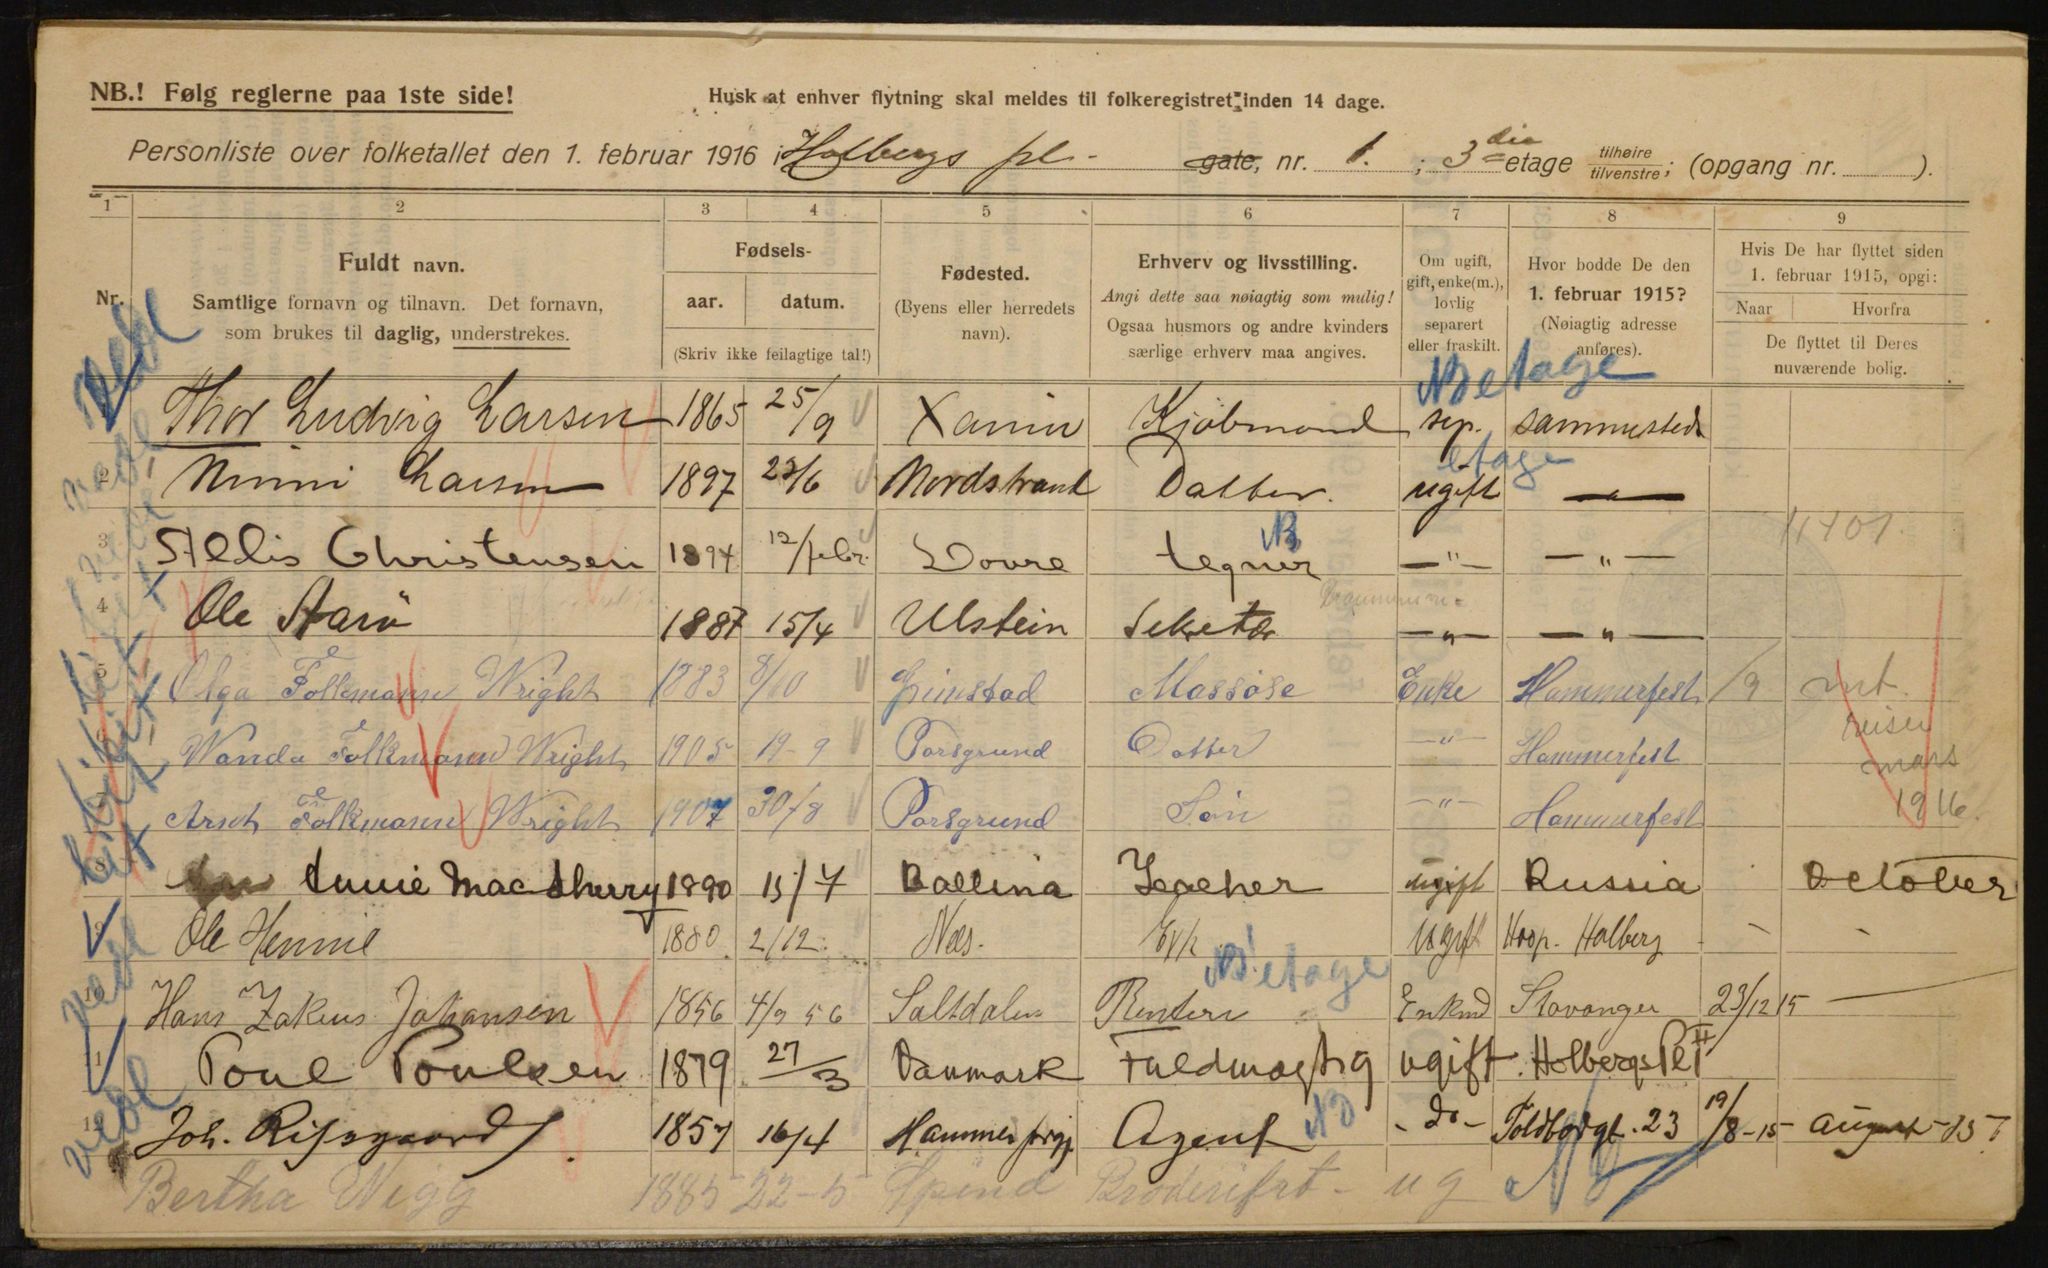 NB.! Følg reglerne paa 1ste side!
Husk at enhver flytning skal meldes til folkeregistret inden 14 dage.
Personliste over folketallet den 1. februar 1916 i Holbergs pl. gate, nr. 1. ; 3die etage tilhøire/tilvenstre; (opgang nr. ).
1 2 3 4 5 6 7 8 9
Nr.
Fuldt navn.
Samtlige fornavn og tilnavn. Det fornavn,
som brukes til daglig, understrekes.
Fødsels-
aar. datum.
(Skriv ikke feilagtige tal!)
Fødested.
(Byens eller herredets
navn).
Erhverv og livsstilling.
Angi dette saa nøiagtig som mulig!
Ogsaa husmors og andre kvinders
særlige erhverv maa angives.
Om ugift,
gift, enke(m.),
lovlig
separert
eller fraskilt.
Hvor bodde De den
1. februar 1915?
(Nøiagtig adresse
anføres).
Hvis De har flyttet siden
1. februar 1915, opgi:
Naar Hvorfra
De flyttet til Deres
nuværende bolig.
NB etage
Thor Ludvig Larsen 1865 25/9 Kjøbmand sep. sammesteds
etage
2 Minni Larsen 1897 Nordstrand Datter. ugift — " —
NB
3 Christensen 1894 12/febr. Dovre tegner — " — — " — 4401.
4 Ole 1887 15/4 Ulstein Sekretær — " — — " —
5 Olga Folkmann Wright 1883 8/10 Grimstad Massøse Enke Hammerfest /9 reiser
6 Wanda Folkmann Wright 1905 19-9 Porsgrund Datter — " — Hammerfest mars
7 Arnt Folkmann Wright 1907 30/8 Porsgrund Søn — " — Hammerfest 1916.
8 Annie MacSherry 1890 Ballina Teacher ugift Russia October
9 Ole Hennie 1880 2/12 Næs. ugift Hosp. Holberg - -
NB! etage
10 Hans Zakeus Johansen 1856 4/9 56 Saltdalen Rentier Enkmd Stavanger 23/12 15 —
11 Poul Poulsen 1879 27/3 Danmark Fuldmægtig ugift. Holbergs Pl
12 Joh. Riisgaard 1857 16/4 Agent NB - do - Toldbodgt. 23 19/8-15 august
Bertha Wigg 1885 22-5 ug NB